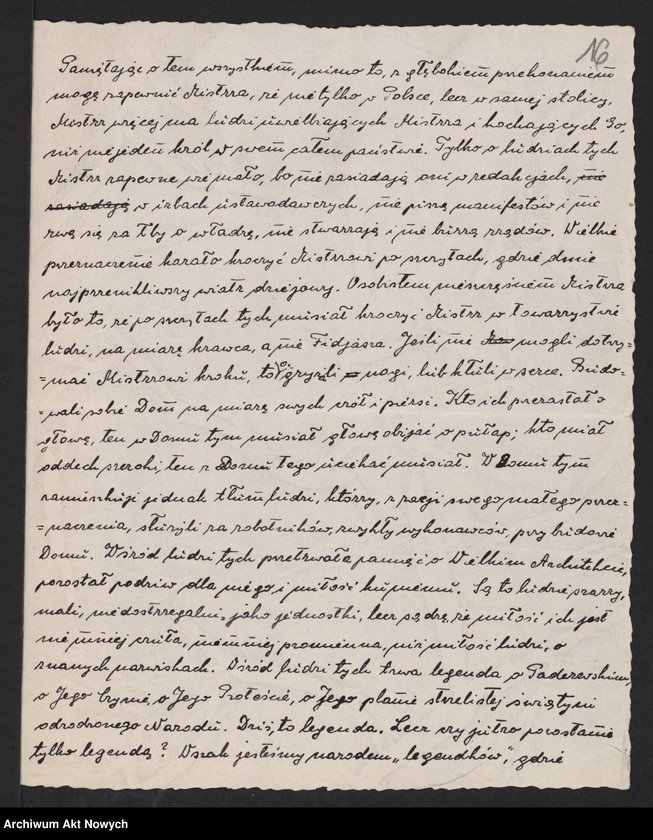 16
Pamiętając o tem wszystkiem, mimo to, z głębokiem przekonaniem
mogę zapewnić Mistrza, że nie tylko w Polsce, lecz w samej stolicy,
Mistrz więcej ma ludzi uwielbiających Mistrza i kochających Go,
niż niejeden król w swem całem państwie. Tylko o ludziach tych
Mistrz zapewne wie mało, bo nie zasiadają oni w redakcjach, nie
zasiadają w izbach ustawodawczych, nie piszą manifestów i nie
rwą się za łby o władzę, nie stwarzają i nie burzą rządów. Wielkie
przeznaczenie kazało kroczyć Mistrzowi po szczytach, gdzie dmie
najprzenikliwszy wiatr dziejowy. Osobistem nieszczęściem Mistrza
było to, że po szczytach tych musiał kroczyć Mistrz w towarzystwie
ludzi, na miarę krawca, a nie Fidjasza. Jeśli nie mogli dotrzy-
-mać Mistrzowi kroku, to gryźli nogi, lub kłuli w serce. Budo-
-wali sobie Dom na miarę swych czół i piersi. Kto ich przerastał o
głowę, ten w Domu tym musiał głowę obijać o pułap; kto miał
oddech szeroki, ten z Domu tego uciekać musiał. W Domu tym
zamieszkuje jednak tłum ludzi, którzy, z racji swego małego przez-
-naczenia, służyli za robotników, zwykłych wykonawców, przy budowie
Domu. Wśród ludzi tych przetrwała pamięć o Wielkim Architekcie,
pozostał podziw dla niego i miłość ku niemu. Są to ludzie szarzy,
mali, niedostrzegalni, jako jednostki, lecz sądzę, że miłość ich jest
nie mniej czuła, niemniej promienna, niż miłość ludzi, o
znanych nazwiskach. Wśród ludzi tych trwa legenda o Paderewskim,
o Jego Czynie, o Jego Proteście, o Jego planie strzelistej świątyni
odrodzonego Narodu. Dziś, to legenda. Lecz czy jutro pozostanie
tylko legendą? Wszak jesteśmy narodem „legendków”, gdzie
Archiwum Akt Nowych